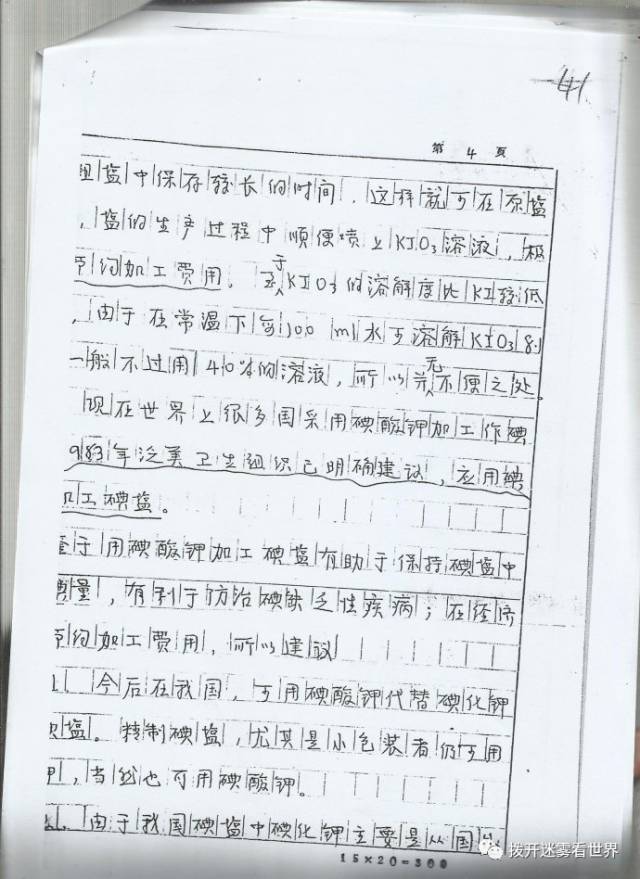 41
第 4 頁
盐中保存较长的时间，这样就可在原盐
，盐的生产过程中顺便喷上KIO3溶液，极
节约加工费用。至于KIO3的溶解度比KI较低
，由于在常温下每100 ml水可溶解KIO3 8.1
一般不过用4%的溶液，所以并无不便之处
现在世界上很多国采用碘酸钾加工作碘
983年泛美卫生组织已明确建议，应用碘
加工碘盐。
鉴于用碘酸钾加工碘盐有助于保持碘盐中
质量，有利于防治碘缺乏性疾病；在经济
节约加工费用，所以建议
1. 今后在我国，可用碘酸钾代替碘化钾
盐。精制碘盐，尤其是小包装者仍可用
钾，当然也可用碘酸钾。
由于我国碘盐中碘化钾主要是从国
拨开迷雾看世界
15×20=300